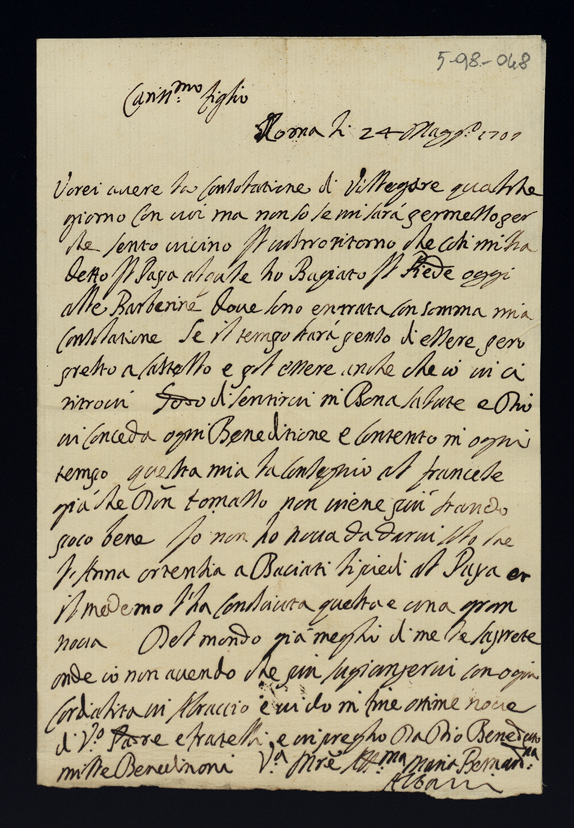 5-98-048
Cariss.mo figlio
Roma li 24 Magg.o
Vorei avere la consolatione di Villegiare qualche
giorno con voi ma non so se mi sará permesso per
che sento vicino il vostro ritorno che cosi mi ha
detto il Papa al quale ho Bagiato il Piede oggi
alle Barberine dove sono entrata con somma mia
consolatione Se il tempo stará penso di essere pero
presto a Castello e puol essere anche che io vi ci
ritrovi Godo di sentirvi in Bona salute e Dio
vi conceda ogni Beneditione e contento in ogni
tempo questa mia la consegnio al francese
giá che Don tomasso non viene piú stando
poco bene Io non ho nova da darvi solo che
S. Anna ortensia a Baciati li piedi al Papa et
il medemo l'ha conosciuta questa e una gran
nova Del mondo giá meglio di me le saprete
onde io non avendo che piu sugiongervi con ogni
Cordialita vi Abraccio e vi do in fine ottime nove
di V.o Padre e fratelli, e vi prego Da Dio Benedetto
mille Beneditioni V.a M.re Aff.ma Maria Bernard.na
Albani